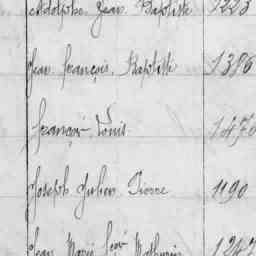 Adolphe Jean Baptiste 1223
Jean François Baptiste 1386
François Louis 1470
Joseph Julien Pierre 1190
Jean Marie Mathurin